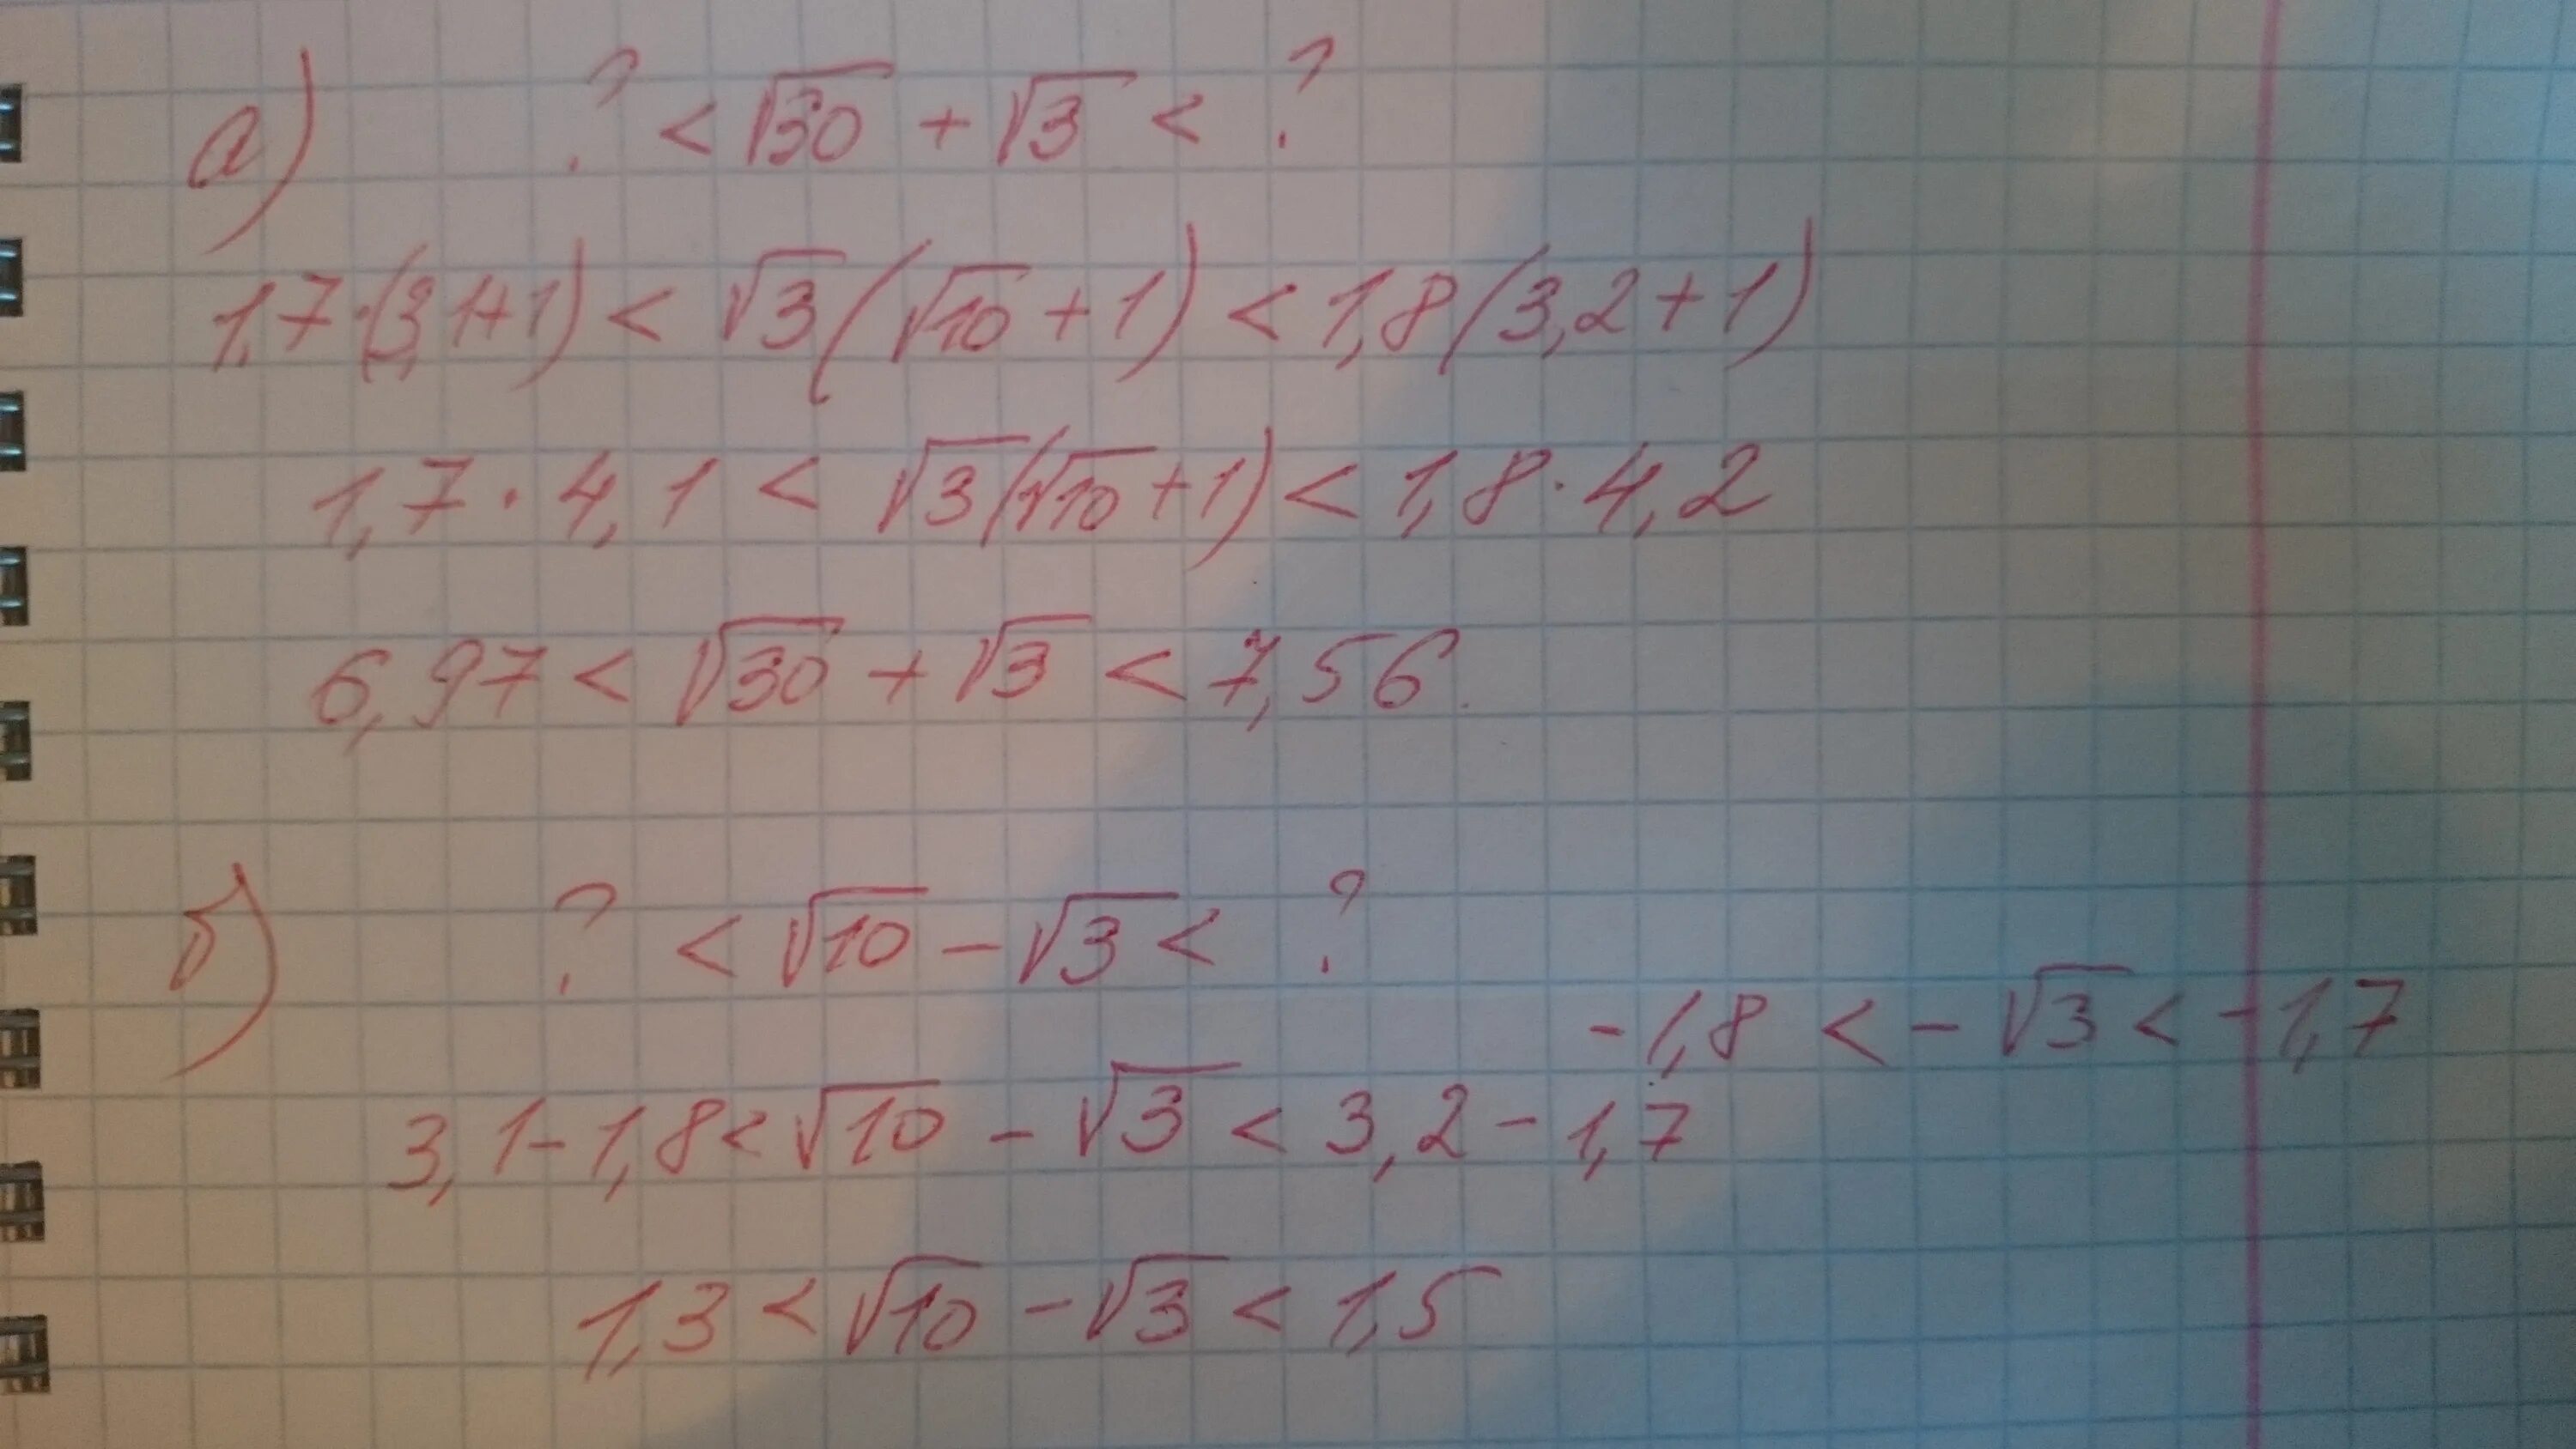 а) ? < √30 + √3 < ?
1,7·(3,1+1) < √3(√10 + 1) < 1,8(3,2+1)
1,7 · 4,1 < √3(√10 + 1) < 1,8 · 4,2
6,97 < √30 + √3 < 7,56.
б) ? < √10 − √3 < ?
-1,8 < − √3 < -1,7
3,1 − 1,8 < √10 − √3 < 3,2 − 1,7
1,3 < √10 − √3 < 1,5